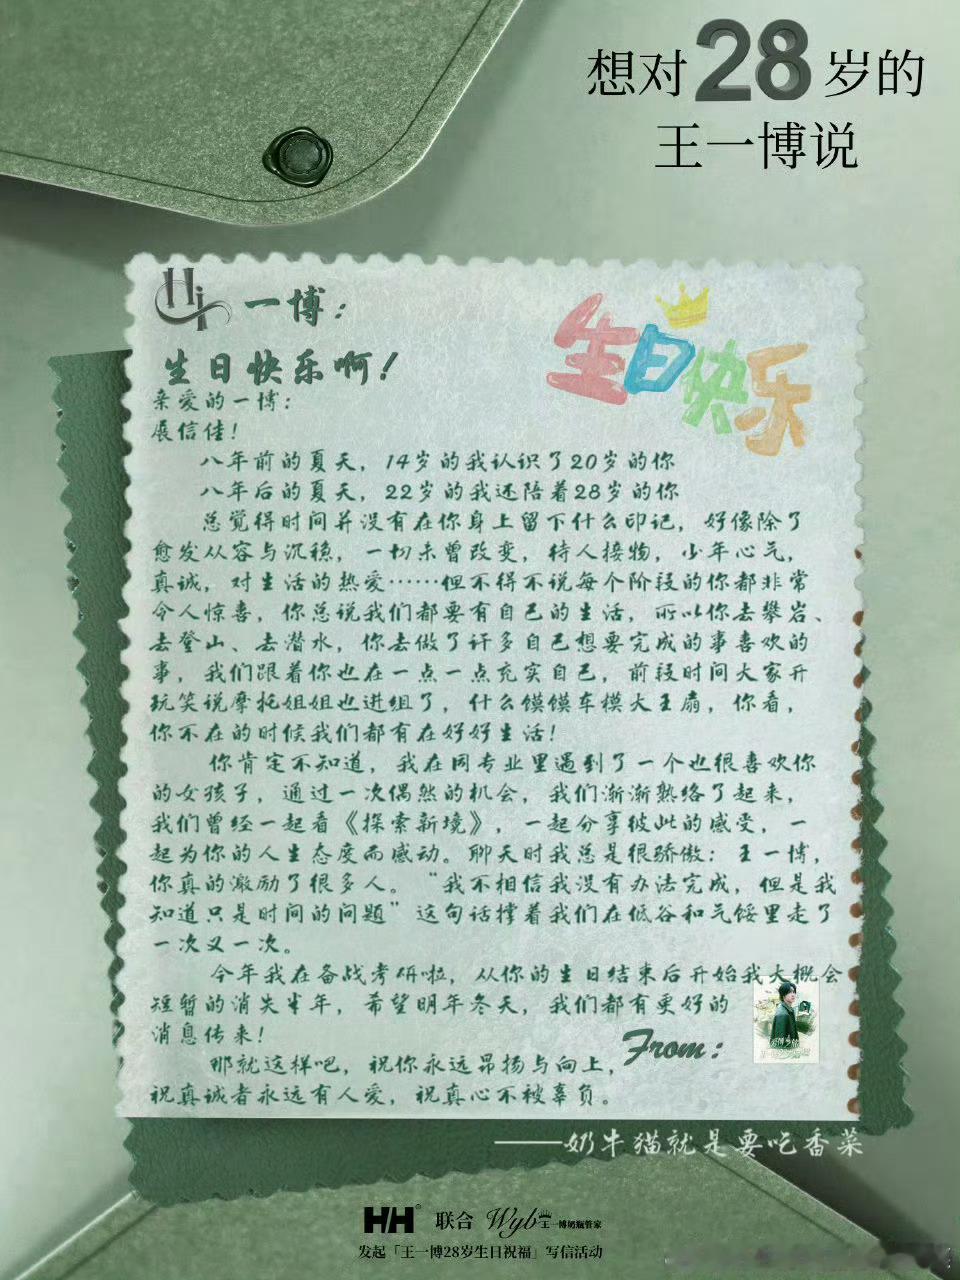 想对28岁的
王一博说
Hi 一博：
生日快乐啊！
生日快乐
亲爱的一博：
展信佳！
八年前的夏天，14岁的我认识了20岁的你
八年后的夏天，22岁的我还陪着28岁的你
总觉得时间并没有在你身上留下什么印记，好像除了
愈发从容与沉稳，一切未曾改变，待人接物，少年心气，
真诚，对生活的热爱……但不得不说每个阶段的你都非常
令人惊喜，你总说我们都要有自己的生活，所以你去攀岩、
去登山、去潜水，你去做了许多自己想要完成的事喜欢的
事，我们跟着你也在一点一点充实自己，前段时间大家开
玩笑说摩托姐姐也进组了，什么馍馍车模大王扇，你看，
你不在的时候我们都有在好好生活！
你肯定不知道，我在同专业里遇到了一个也很喜欢你
的女孩子，通过一次偶然的机会，我们渐渐熟络了起来，
我们曾经一起看《探索新境》，一起分享彼此的感受，一
起为你的人生态度而感动。聊天时我总是很骄傲：王一博，
你真的激励了很多人。“我不相信我没有办法完成，但是我
知道只是时间的问题”这句话撑着我们在低谷和气馁里走了
一次又一次。
今年我在备战考研啦，从你的生日结束后开始我大概会
短暂的消失半年，希望明年冬天，我们都有更好的
消息传来！
From：
那就这样吧，祝你永远昂扬与向上，
祝真诚者永远有人爱，祝真心不被辜负。
——奶牛猫就是要吃香菜
HH 联合 Wyb王一博奶瓶管家
发起「王一博28岁生日祝福」写信活动